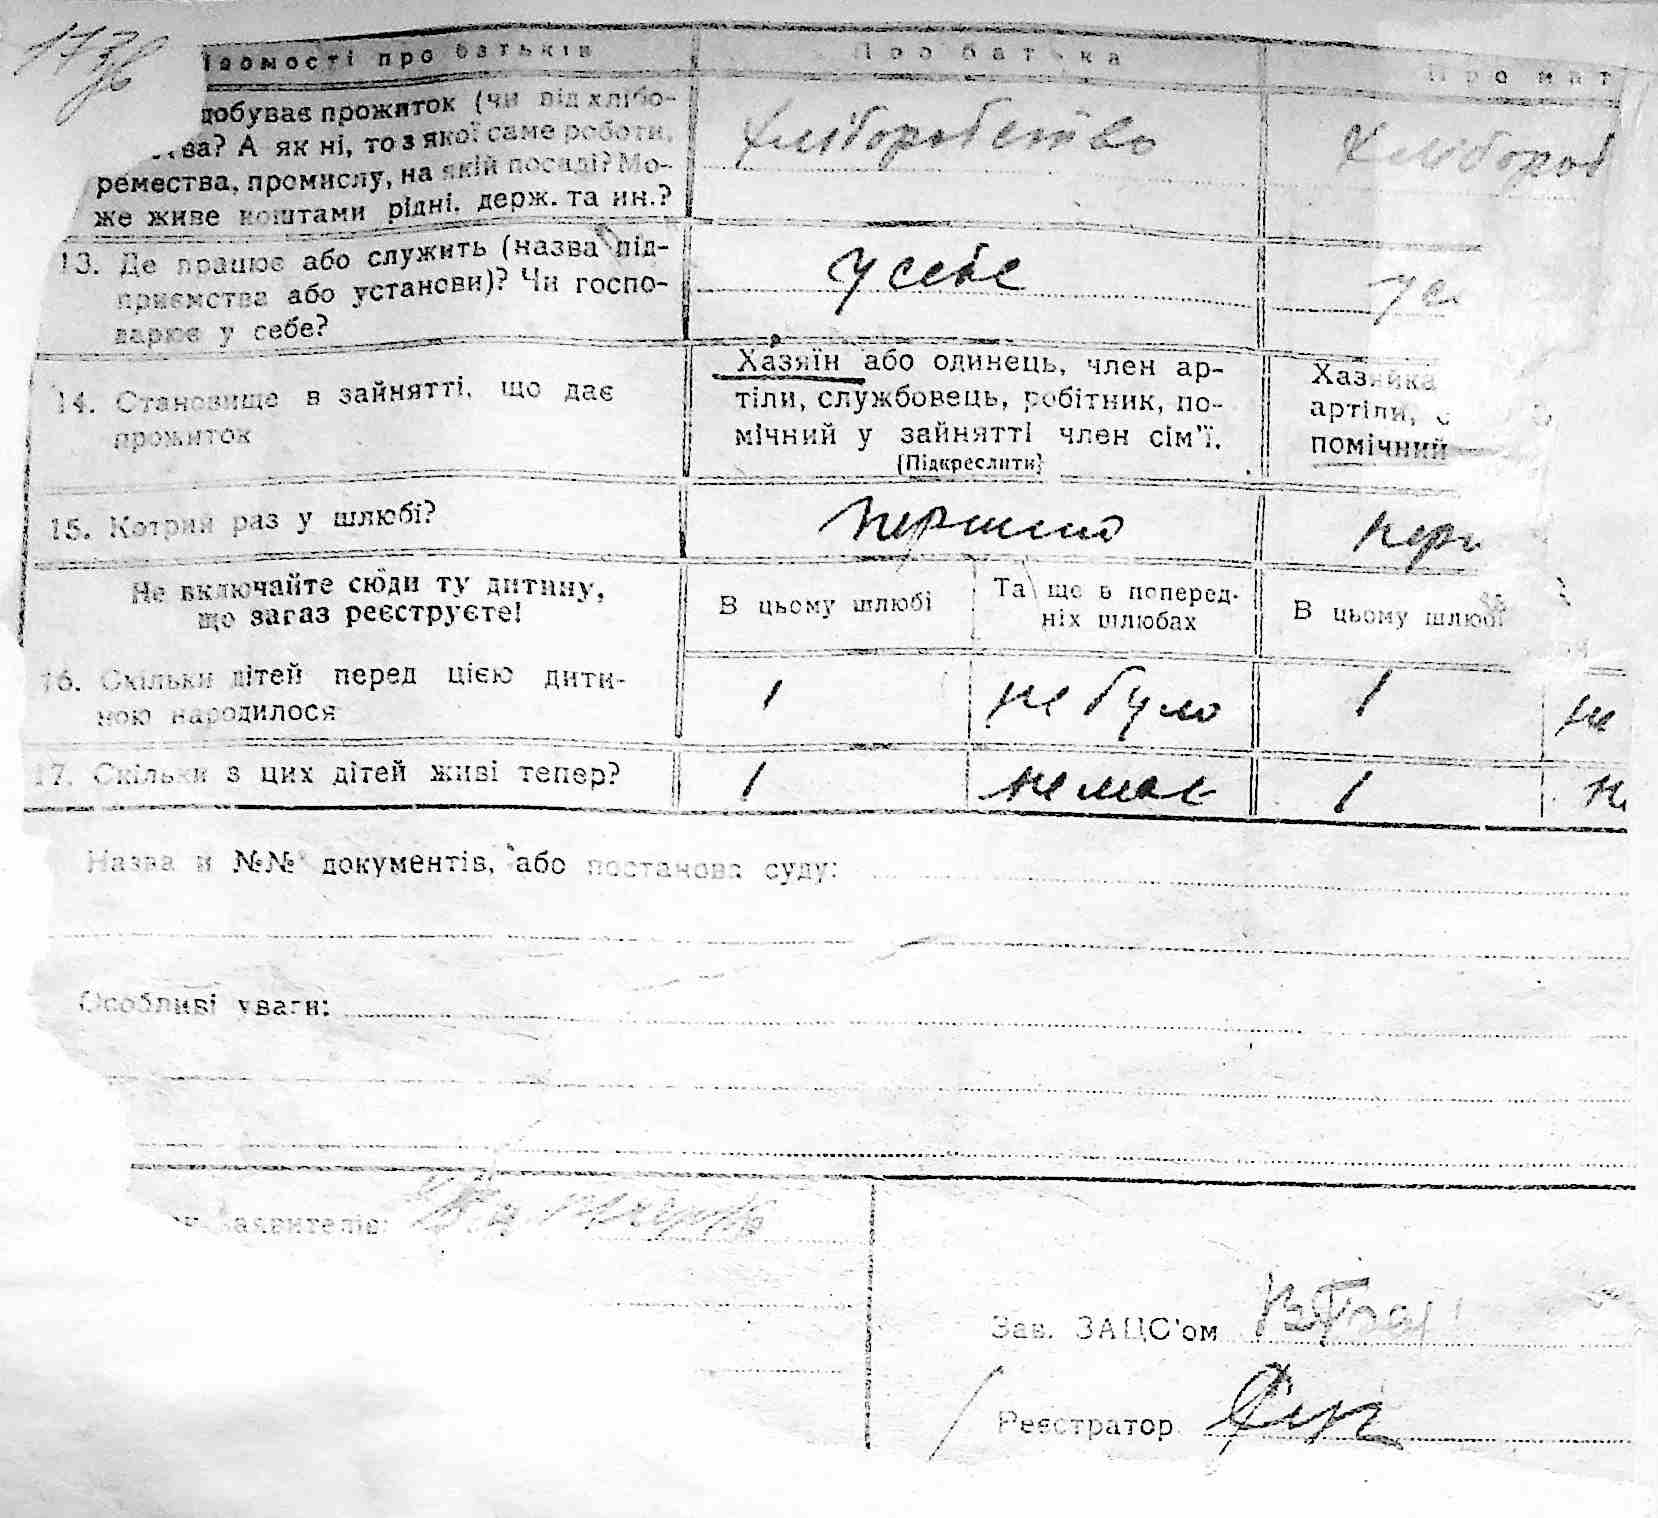 173
ідомості про батьків
Про батька
Про мат
добуває прожиток (чи від хлібо-
ства? А як ні, то з якої саме роботи,
ремества, промислу, на якій посаді? Мо-
же живе коштами рідні, держ. та ин.?
хліборобство
хлібороб
13. Де працює або служить (назва під-
приємства або установи)? Чи госпо-
дарює у себе?
у себе
у се
14. Становище в зайнятті, що дає
прожиток
Хазяїн або одинець, член ар-
тіли, службовець, робітник, по-
мічний у зайнятті член сім'ї.
(Підкреслити)
Хазяйка
артіли, с
помічний
15. Котрий раз у шлюбі?
перший
перш
Не включайте сюди ту дитину,
що зараз реєструєте!
В цьому шлюбі
Та ще в поперед-
ніх шлюбах
В цьому шлюбі
16. Скільки дітей перед цією дити-
ною народилося
1
не було
1
не
17. Скільки з цих дітей живі тепер?
1
немає
1
н
Назва и №№ документів, або постанова суду:
Особливі уваги:
заявителів:
Зав. ЗАЦС'ом
Реєстратор